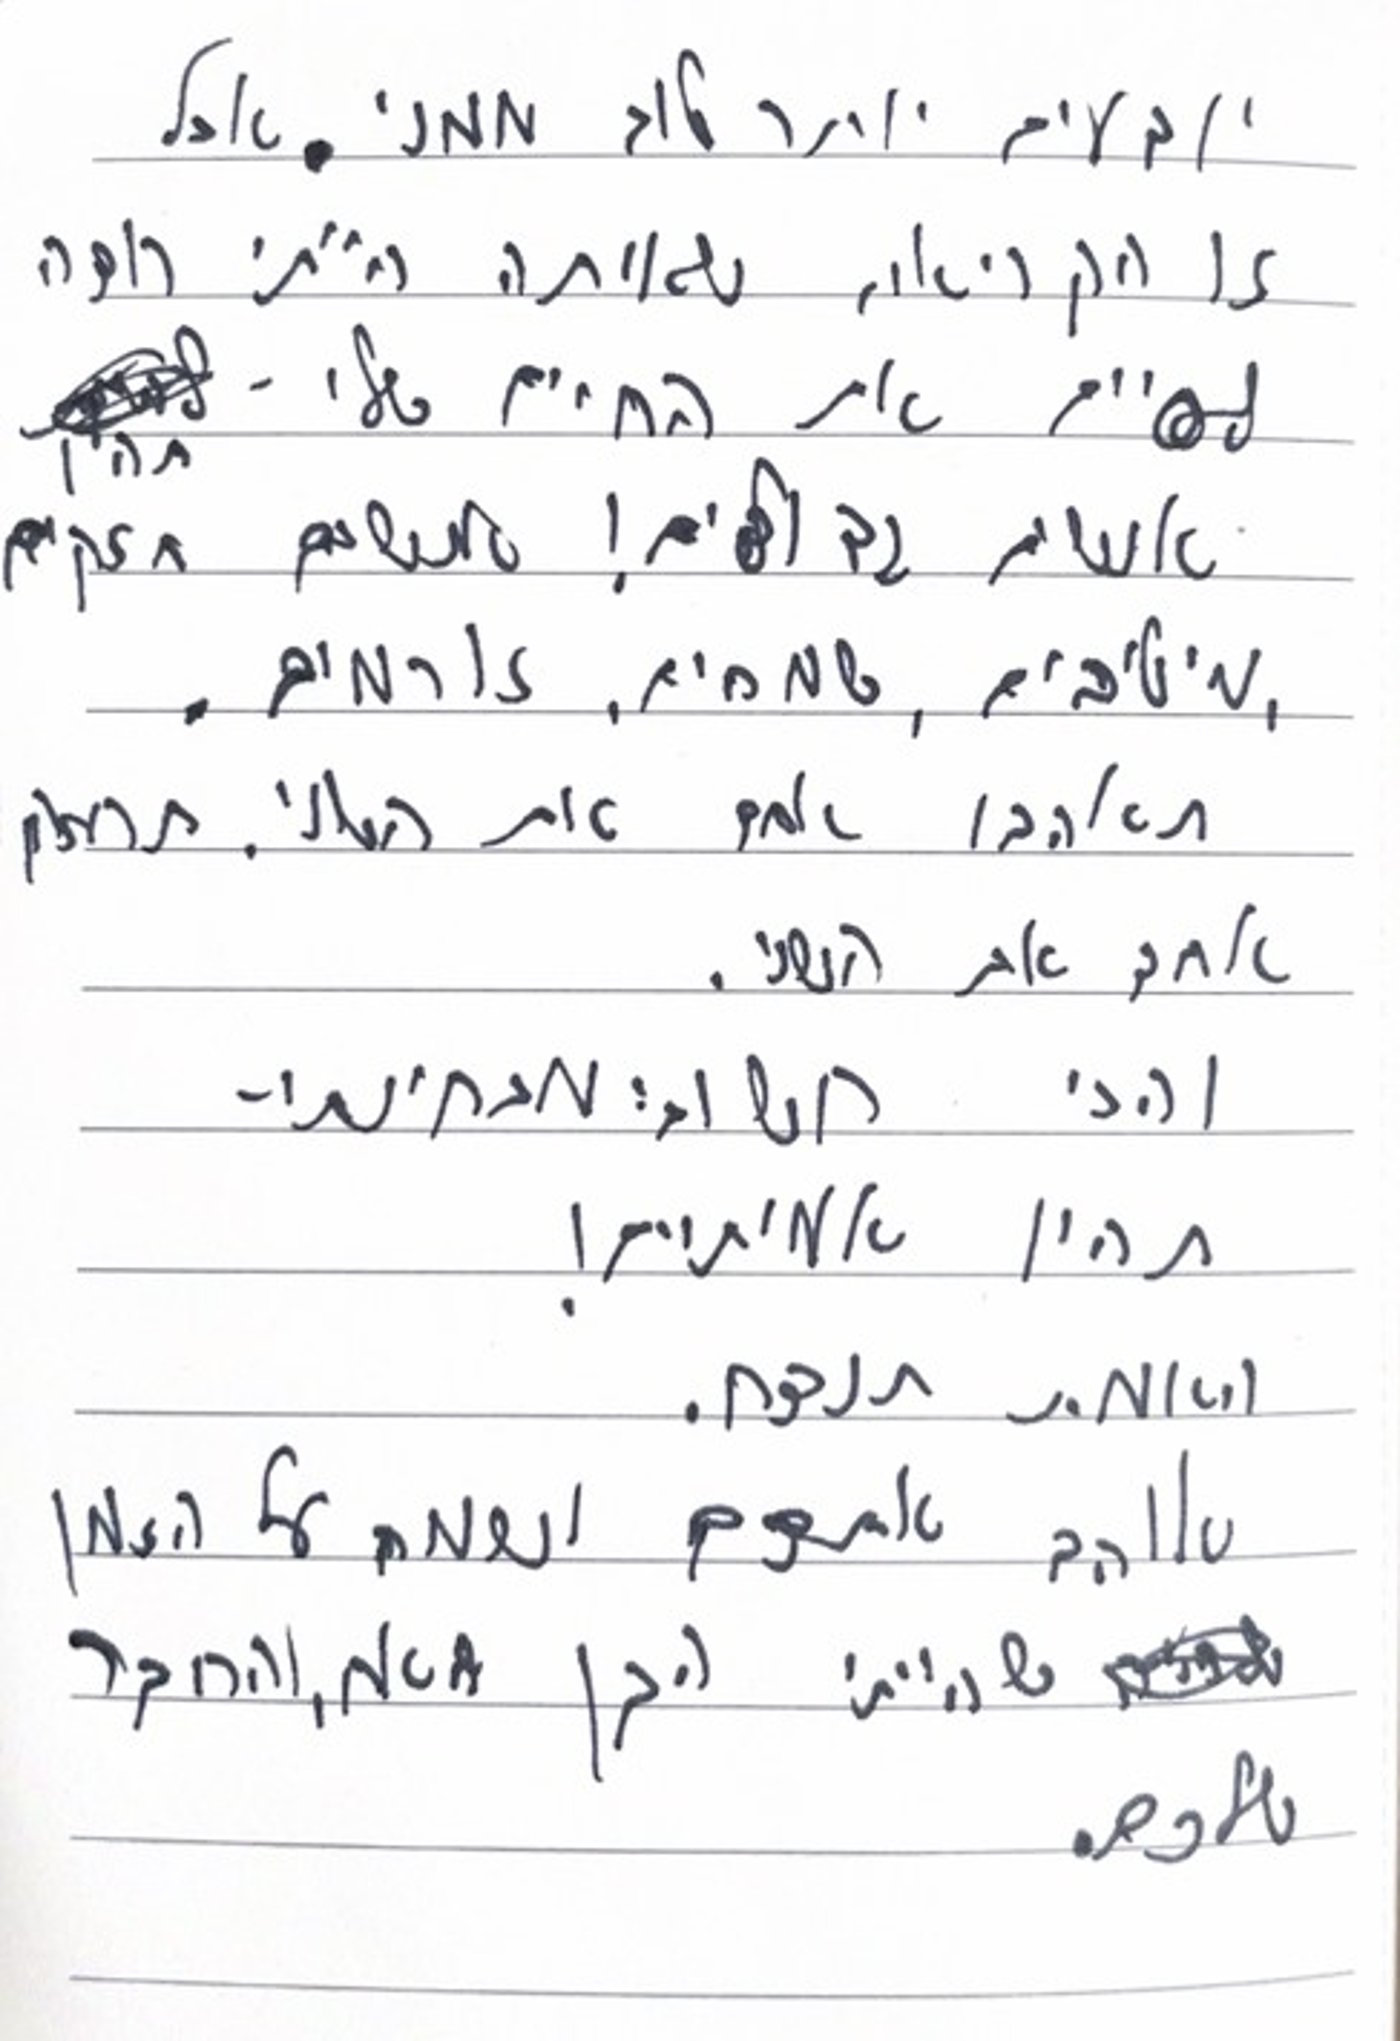 יודעים יותר טוב ממני. אבל
זו הקריאה שאיתה הייתי רוצה
לסיים את החיים שלי -
תהיו
אנשים טובים! אנשים חזקים
, מיטיבים, שמחים, זורמים.
תאהבו אחד את השני. תחזק
אחד את השני.
והכי חשוב: מבחינתי-
תהיו אמיתיים!
האמת תנצח.
אוהב אתכם ונשמח על הזמן
שהייתי הבן אדם, והחבר
שלכם.